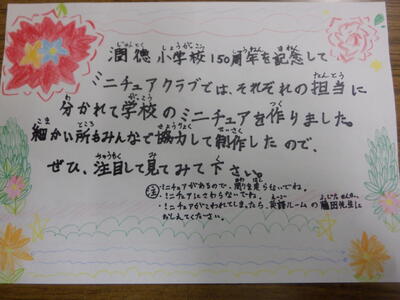 潤徳小学校150周年を記念して
ミニチュアクラブでは、それぞれの担当に
分かれて学校のミニチュアを作りました。
細かい所もみんなで協力して制作したので、
ぜひ、注目して見てみて下さい。
注 ・ミニチュアがあるので、周りを走らないでね。
・ミニチュアにさわらないでね。
・ミニチュアがこわれてしまったら、英語ルームの 田先生に
かしえてください。